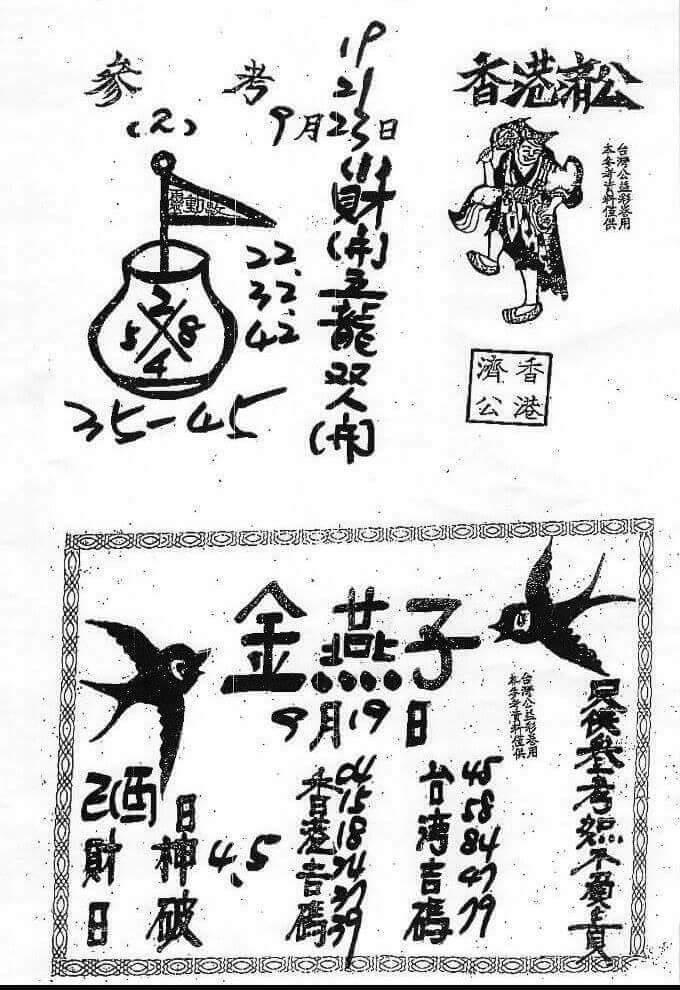 參考
(2)
19
21
9月23日
香港濟公
本參考資料僅供
台灣公益彩卷用
靈動數
2
5 8
4
22.
32.
42
35-45
財
(开)五龍双人(开)
香港
濟公
金燕子
9月19日
本參考資料僅供
台灣公益彩卷用
只供參考恕不負責
己酉日
財神
日破
4.5
香港吉碼
04
15
18
24
39
台灣吉碼
45
58
84
47
79